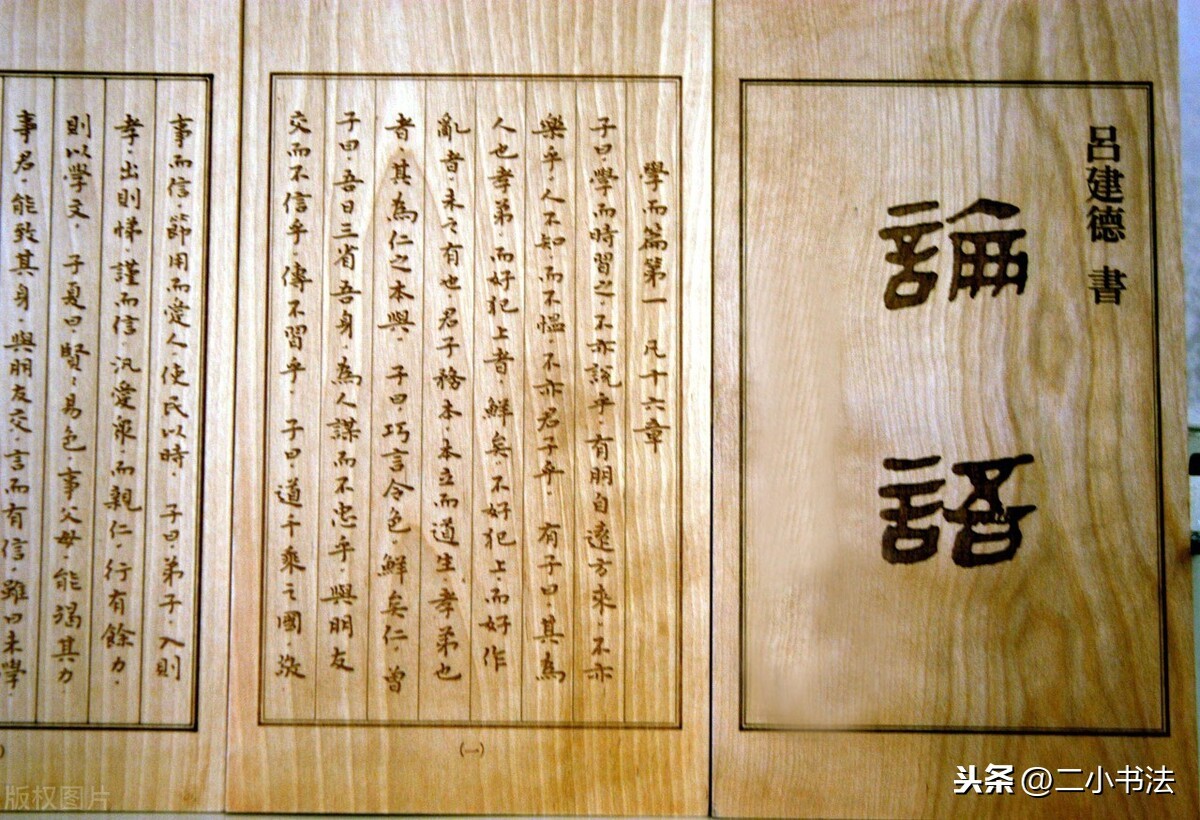 呂建德 書
論語
學而篇第一 凡十六章
子曰．學而時習之．不亦說乎．有朋自遠方來．不亦
樂乎．人不知．而不慍．不亦君子乎． 有子曰．其為
人也孝弟．而好犯上者．鮮矣．不好犯上．而好作
亂者．未之有也．君子務本．本立而道生．孝弟也
者．其為仁之本與． 子曰．巧言令色．鮮矣仁．曾
子曰．吾日三省吾身．為人謀而不忠乎．與朋友
交而不信乎．傳不習乎． 子曰．道千乘之國．敬
(一)
事而信．節用而愛人．使民以時． 子曰．弟子．入則
孝．出則悌．謹而信．汎愛眾．而親仁．行有餘力．
則以學文． 子夏曰．賢〻易色．事父母．能竭其力．
事君．能致其身．與朋友交．言而有信．雖曰未學
版权图片
头条 @二小书法